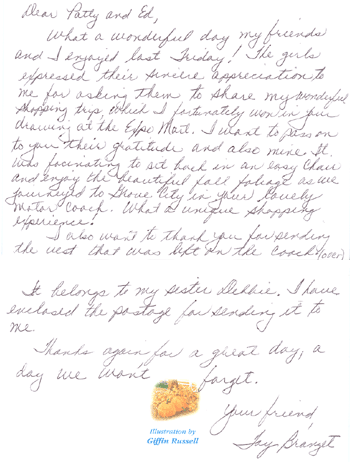 Dear Patty and Ed,
What a wonderful day my friends
and I enjoyed last Friday! The girls
expressed their sincere appreciation to
me for asking them to share my wonderful
shopping trip, which I fortunately won in your
drawing at the Expo Mart. I want to pass on
to you their gratitude and also mine. It
was facinating to sit back in an easy chair
and enjoy the beautiful fall foliage as we
journeyed to Grove City in your lovely
motor coach. What a unique shopping
experience!
I also want to thank you for sending
the vest that was left on the coach. (over)
It belongs to my sister Debbie. I have
enclosed the postage for sending it to
me.
Thanks again for a great day, a
day we won't forget.
Your friend,
Illustration by
Giffin Russell